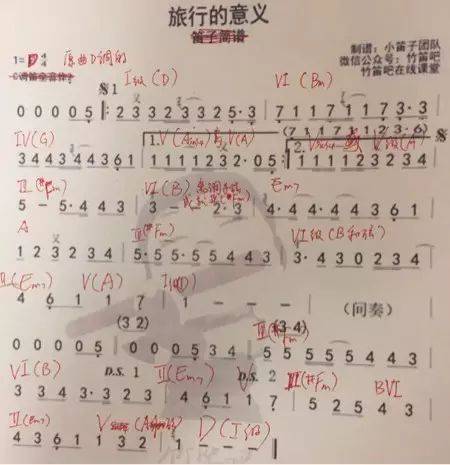 旅行的意义
笛子简谱
1=D 4/4 原曲D调的
制谱：小笛子团队
微信公众号：竹笛吧
竹笛吧在线课堂
𝄋1 I级(D) VI(Bm)
0 0 0 0 5 2 3 3 2 3 2 3 3 2 5·3 7 1 1 7 1 1 7 3·3
(7 1 7 1 7 1 2 3·6)
IV(G) 1. V(A) 2.
3 4 4 3 4 4 3 6 1 1 1 1 1 2 3 2·0 5 1 1 1 1 2 3 2 3 4
VI(B) Em7
5 - 5·4 4 3 3 - 2·3 4·4·4·4 4 3 6 1
A III(#Fm) VI级(B和弦)
1 2 3 2 3 4 5·5 5·5 5 5 4 3·4 3 0 2 3 4
II(Em7) V(A) I级(D)
4 6 1 1 7 1 - - - (间奏)
(3 2)
(3 4)
0 0 0 0 5 0 0 0 5 3 4 5 5 5 5 5 4 3
VI(B) D.S. 1 II(Em7) D.S. 2 III(#Fm) BVI
3 3 4 3·3 2 3 4 6 1 1 7 5 2 5 4 3
II(Em7) D(I级)
4 3 6 1 1 3 2 1 - - -